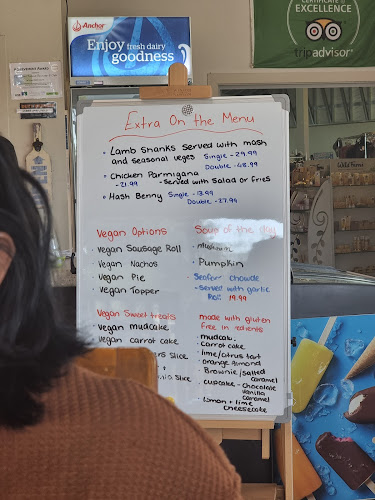 Anchor
Enjoy fresh dairy
goodness
CERTIFICATE of
EXCELLENCE
tripadvisor
Extra On the Menu
• Lamb Shanks Served with mash
and seasonal veges Single - 29.99
Double - 48.99
• Chicken Parmigana
- 21.99 - Served with Salad or Fries
• Hash Benny Single - 13.99
Double - 27.99
Vegan Options
Vegan Sausage Roll
Vegan Nachos
Vegan Pie
Vegan Topper
Soup of the day
Pumpkin
Seafood chowde
- served with garlic
Roll 19.99
Vegan Sweet treats
Vegan mudcake
Vegan carrot cake
Slice
Slice
made with gluten
free in redients
• mudcak
• carrot cake
• lime/citrus tart
• orange almond
• Brownie/salted
caramel
• cupcake - chocolate
vanilla
caramel
• lemon + lime
cheesecake